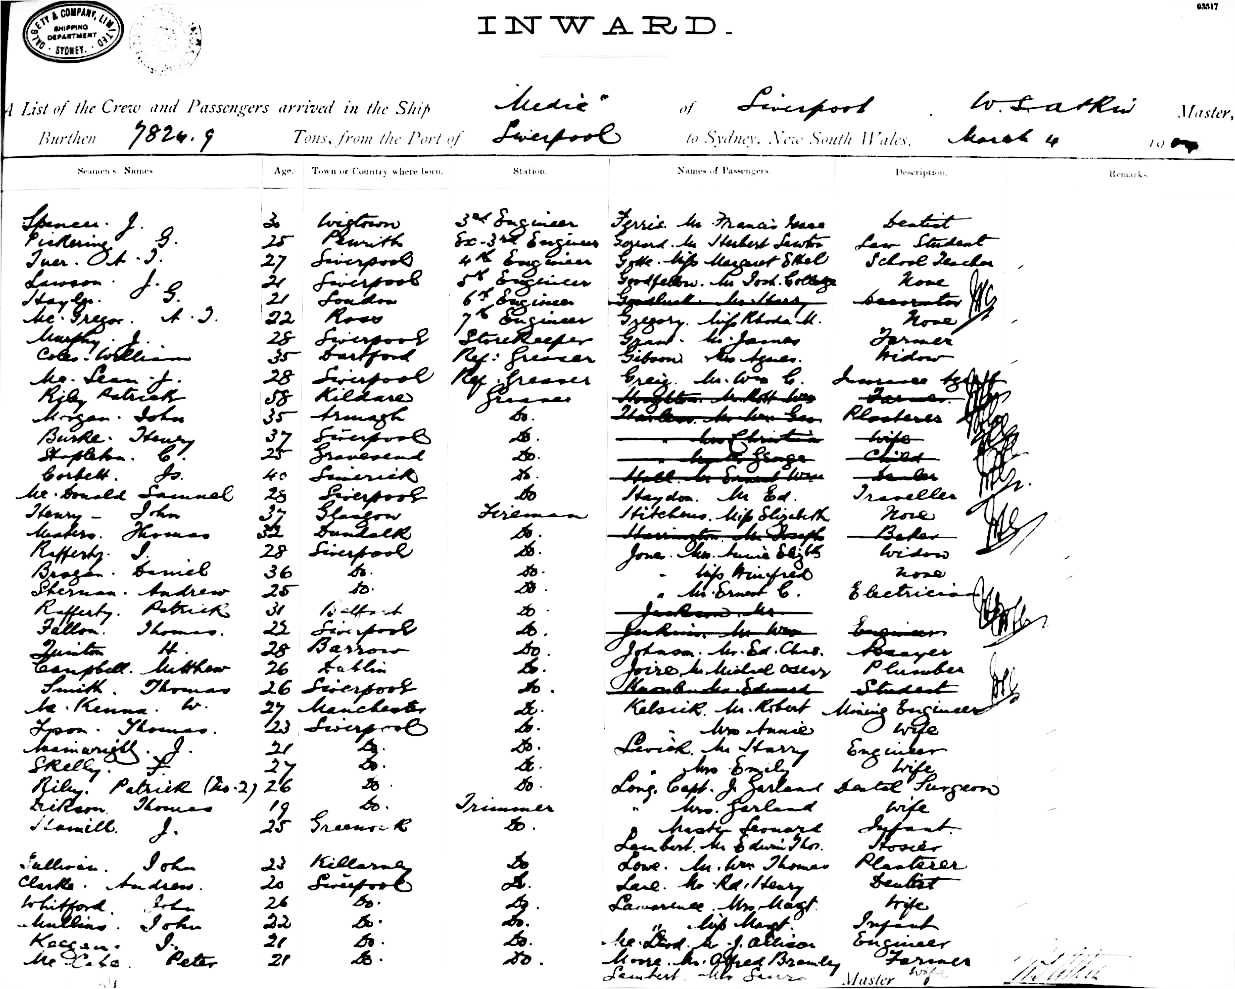 03517
DALGETY & COMPANY, LIMITED
SHIPPING DEPARTMENT
SYDNEY.
INWARD.
A List of the Crew and Passengers arrived in the Ship "Medic" of Liverpool. W. S. Atkin Master,
Burthen 7824.9 Tons, from the Port of Liverpool to Sydney, New South Wales, March 4 190
Seamen's Names Age. Town or Country where born. Station. Names of Passengers. Description. Remarks.
Spencer. J. 30 Wigtown 3rd Engineer Ferris Mr Francis Isaac Dentist
Pickering G. 25 Penrith Ex-3rd Engineer Mr Herbert Law Student
27 Liverpool 4th Engineer Miss Margaret Ethel School Teacher
Lawson. J. 21 Liverpool 5th Engineer Goodfellow. Mr Josh. None
G. 21 London 6th Engineer Goodluck. Mr Harry Decorator
Mc. Gregor. A. J. 22 Ross 7th Engineer Gregory. Miss Rhoda M. None
Murphy. J. 28 Liverpool StoreKeeper Grant. Mr James Farmer
Coles. William 35 Dartford Ref: Greaser Gibson Mrs Agnes. Widow
Mc. Lean. J. 28 Liverpool Ref Greaser Greig. Mr. Wm C. Insurance
Riley Patrick 58 Kildare Greaser Farmer
Morgan. John 35 Armagh Do. Mr Wm Plasterer
Burke. Henry 37 Liverpool Do. " Mrs Christina Wife
Stapleton. C. 25 Gravesend Do. " George Child
Corbett. Js. 40 Limerick Do. Hall. Mr Ernest Wm
Mc. Donald Samuel 28 Liverpool Do Haydon. Mr Ed. Traveller
Henry - John 37 Glasgow Fireman Hitchens. Miss Elizabeth None
Masters. Thomas 32 Dundalk Do. Harrington. Mr Joseph Baker
Rafferty. J. 28 Liverpool Do. Jones. Mrs. Annie Elizth Widow
Brogan. Daniel 36 Do. Do. " Miss Winifred None
Sherman. Andrew 25 Do. Do. " Mr Ernest C. Electrician
Rafferty. Patrick 31 Belfast Do Jackson. Mr
Fallon. Thomas. 22 Liverpool Do. Jenkins. Mr Wm Engineer
Quinton H. 28 Barrow Do. Johnson. Mr. Ed. Chas.
Campbell. Matthew 26 Dublin Do. Mr Michael Plumber
Smith. Thomas 26 Liverpool Do. Mr Edward Student
Mc. Kenna. W. 27 Manchester Do. Kelsick. Mr. Robert Mining Engineer
Tyson. Thomas. 23 Liverpool Do. " Mrs Annie Wife
Wainwright. J. 21 Do. Do. Levick. Mr Harry Engineer
Skelly. F. 27 Do. Do. " Mrs Emily Wife
Riley. Patrick (No. 2) 26 Do Do. Long. Capt. J. Garland Dental Surgeon
Erikson. Thomas 19 Do. Trimmer " Mrs. Garland Wife
Hamill. J. 25 Greenock Do. " Master Leonard Infant
Lambert. Mr Edwin Thos. Hosier
Sullivan. John 23 Killarney Do Lowe. Mr. Wm Thomas Plasterer
Clarke. Andrew. 20 Liverpool Do. Lane. Mr Rd. Henry Dentist
Whitford. John 26 Do. Do. Lawrence. Mrs Margt. Wife
Mullins. John 22 Do. Do. " Miss Margt Infant
Keegan. J. 21 Do. Do. Mr J. Allison Engineer
Mc Cabe. Peter 21 Do. Do. Moore. Mr. Alfred Bramley Farmer
Lambert. Mrs Laura Wife
Master